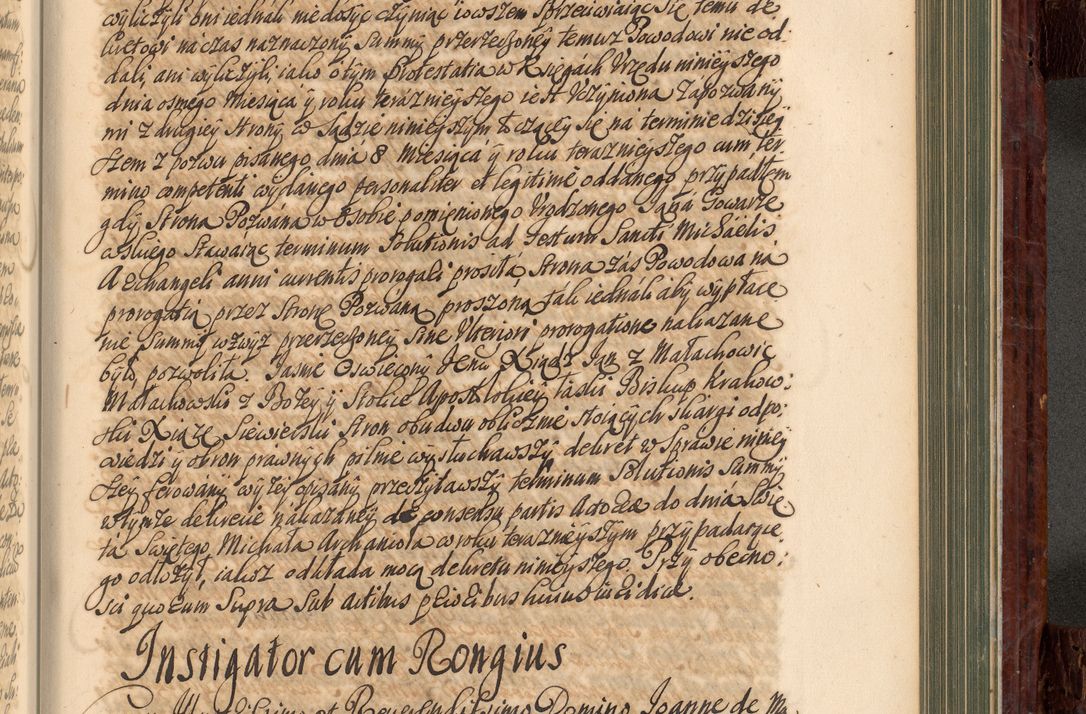 wyliczyli oni iednak niedosyc czyniąc iowszem sprzeciwiaiąc się temu de
kretowi na czas naznaczony Summy przerzeczoney temuz Powodowi nie od
dali, ani wyliczyli, iako o tym Protestatia w Xięgach Vrzędu ninieyszego
dnia osmego Miesiąca y roku teraznieyszego iest Vczyniona Zapozwany
mi z drugiey strony, w Sądzie ninieyszym toczącey się na terminie dzisiey
szem z pozwu pisanego dnia 8 Miesiąca y roku teraznieyszego cum ter
mino competenti wydanego personaliter et legitime oddanego przypadłem
gdy Strona Pozwana w osobie pomienionego Vrodzonego Jana Powarze
wskiego stawaiąc terminum Solutionis ad Festum Sancti Michaelis
Archangeli anni currentis prorogali prosiła, Strona zas Powodowa na
prorogatią przez Stronę Pozwaną proszoną, tak iednak aby wypłace
nie Summy wzwyz przerzeczoney Sine Vlteriori prorogatione nakazane
było pozwoliła. Jasnie Oswiecony Jemc Xiądz Jan z Małachowic
Małachowski z Bozey y Stolice Apostolskiey łaski Biskup Krakow:
ski Xiąze Siewierski stron obudwu oblicznie stoiących Skargi odpo:
wiedzi y obron prawnych pilnie wysłuchawszy, dekret w Sprawie niniey
szey ferowany wyzey opisany przeczytawszy terminum Solutionis Summy
w tymze dekrecie nakazaney de consensu partis Actoreae do dnia Swię
ta Swiętego Michała Archanioła w roku teraznieyszym przypadaiące
go odłozył, iakosz odkłada mocą dekretu ninieyszego. Przy obecno:
sci quorum Supra Sub actibus praecibus huiusmodi.
Instigator cum Rongius
et Reverendissimo Domino Joanne de Ma